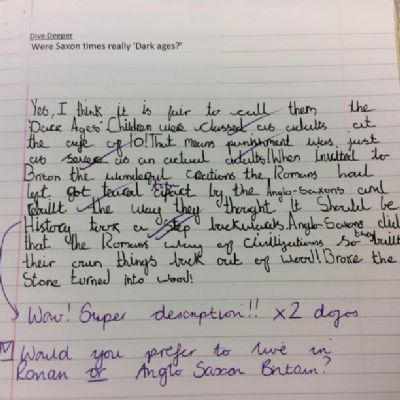 Dive Deeper
Were Saxon times really 'Dark ages?'
Yes, I think it is fair to call them the
'Dark Ages' Children were classed as adults at
the age of 10! That means punishment was just
as severe as an actual adults! When Invited to
Briton the wonderful creations the Romans had
left got teared apart by the Anglo-Saxons and
rebuilt the way they thought It Should be
History took a step backwards. Anglo-Saxons did
that the Romans way of civilizations so they built
their own things back out of wood! Broke the
Stone turned into wood!
Wow! Super description!! x2 dojos
Would you prefer to live in
Roman or Anglo Saxon Britain?